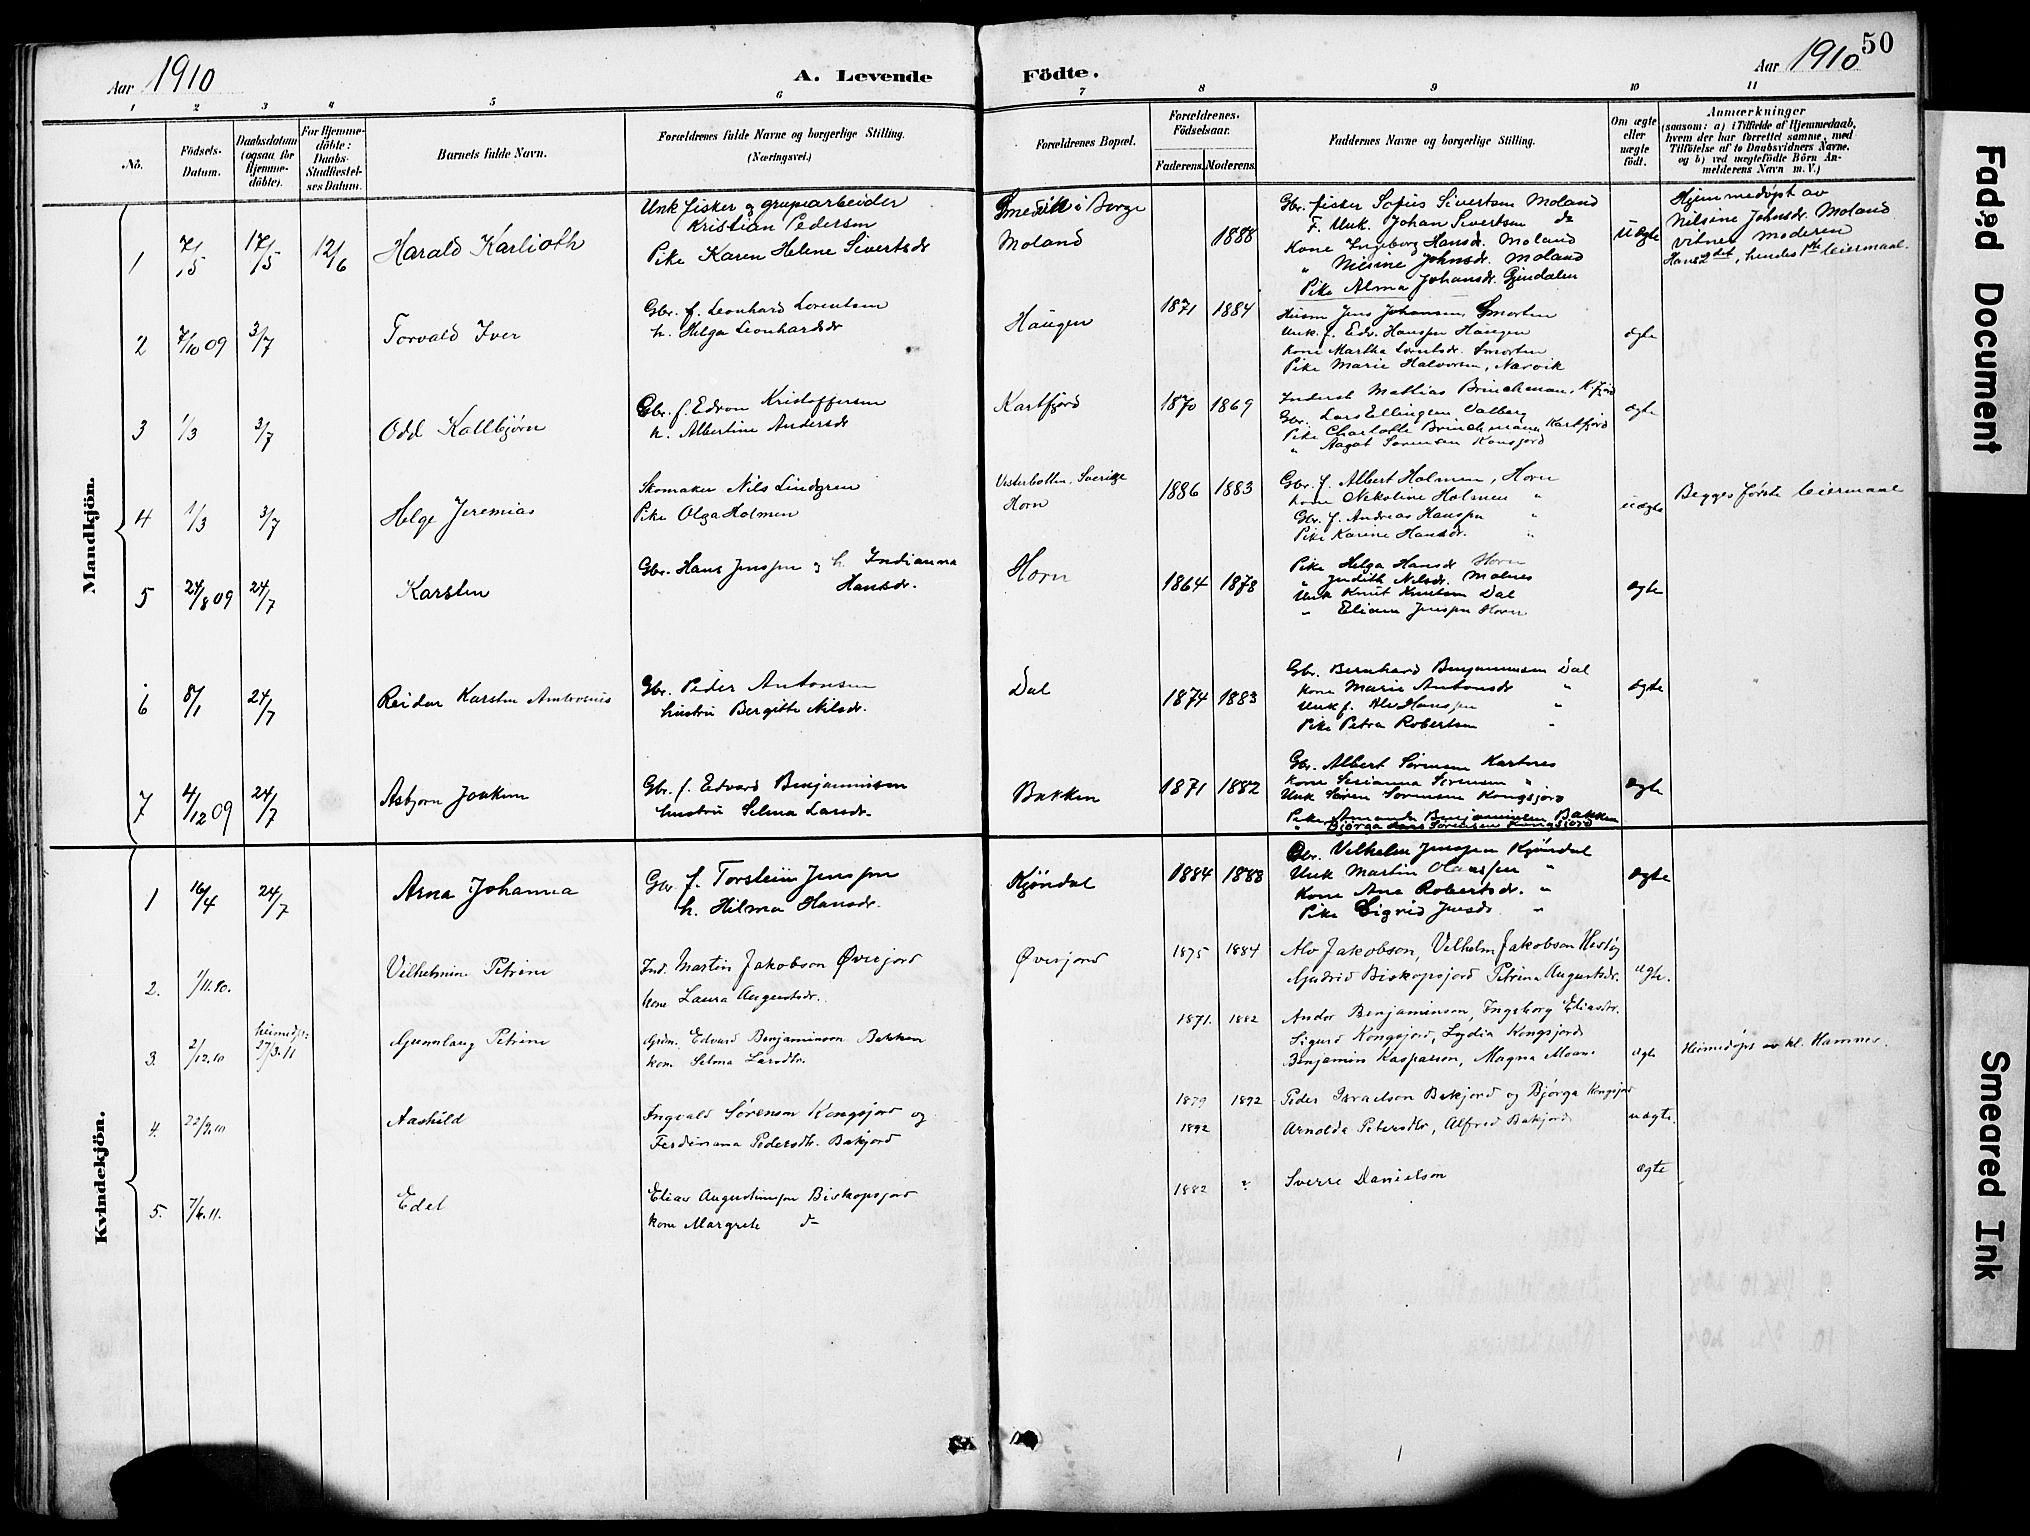 Aar 1910
A. Levende Födte.
Aar 1910
50
1 2 3 4 5 6 7 8 9 10 11
No.
Födsels-Datum.
Daabsdatum (ogsaa for Hjemme-döbte).
For Hjemme-döbte: Daabs-Stadfæstel-ses Datum.
Barnets fulde Navn.
Forældrenes fulde Navne og borgerlige Stilling. (Næringsvei.)
Forældrenes Bopæl.
Forældrenes Födselsaar.
Faderens. Moderens.
Faddernes Navne og borgerlige Stilling.
Om ægte eller uægte födt.
Anmærkninger
(saasom: a) i Tilfælde af Hjemmedaab,
hvem der har forrettet samme, med
Tilföielse af to Daabsvidners Navne,
og b) ved uægtefödte Börn An-
melderens Navn m. V.)
Mandkjön.
1 7/15 17/5 12/6 Harald Karlioth
Unk fisker og grubarbeider
Kristian Pedersen
Pike Karen Helene Sivertsdr
Smedvik i Borge
Moland
1888
Gbr. fisker Sofus Sivertsen Moland
F. Unk. Johan Sivertsen do
Kone Ingeborg Hansdr. Moland
" Nilsine Johnsdr. Moland
Pike Alma Johansdr.
uægte
Hjemmedøpt av
Nilsine Johnsdr. Moland
vitner moderen
Hans 2det, hendes 1ste leiermaal.
2 7/10 09 3/7 Torvald Iver
Gbr. f. Leonhard Lorentsen
h. Helga Leonhardsdr
Haugen
1871 1884
Husm Jens Johansen, Smorten
Unk. f. Edv. Hanssen Haugen
Kone Martha Lorentsdr. Smorten
Pike Marie Halvorsen, Narvik
ægte
3 1/3 3/7 Odd Kollbjørn
Gbr. f. Edvon Kristoffersen
h. Albertine Andersdr
Kartfjord
1870 1869
Inderst Mathias Brinchman, K.fjord
Gbr. Lars Ellingsen Valberg
Pike Charlotte Brinchmann Kartfjord
" Aagot Sørensen Konsjord
ægte
4 1/3 3/7 Helge Jeremias
Skomaker Nils Lindgren
Pike Olga Holmen
Vesterbotten, Sverige
Horn
1886 1883
Gbr. f. Albert Holmen, Horn
kone Nikoline Holmen "
Gbr. f. Andreas Hanssen "
Pike Karine Hansdr. "
uægte
Begges første leiermaal
5 24/8 09 24/7 Karsten
Gbr. Hans Jenssen og h. Indianna
Hansdr.
Horn
1864 1878
Pike Helga Hansdr Horn
" Judith Nilsdr. Molnes
Unk Knut Knutsen Dal
" Eliam Jenssen Horn
ægte
6 8/1 24/7 Reidar Karsten
Gbr. Peder Antonsen
hustru Bergitte Nilsdr.
Dal
1874 1883
Gbr. Bernhard Benjaminsen Dal
Kone Marie Antonsdr "
Unk f. Alv Hanssen "
Pike Petra Robertsen "
ægte
7 4/12 09 24/7 Asbjørn Joakim
Gbr. f. Edvard Benjaminsen
hustru Selma Larsdr.
Bakken
1871 1882
Gbr. Albert Sørensen Kartnes
Kone Serianna Sørensen "
Unk Søren Sørensen Kongsjord
Pike Amanda Benjaminsen Bakken
" Bjørga Sørensen Kongsjord
ægte
Kvindekjön.
1 16/4 24/7 Arna Johanna
Gbr. f. Torstein Jenssen
h. Hilma Hansdr.
Kjøndal
1884 1888
Gbr. Vilhelm Jenssen Kjøndal
Unk Martin Hanssen "
Kone Ane Robertsdr. "
Pike Sigrid Jensdr "
ægte
2. 1/11.10. Vilhelmine Petrine
Ind. Martin Jakobson Øverjord
kone Laura Augustsdr.
Øverjord
1875 1884
Alv Jakobson, Vilhelm Jakobson
Gudrid Biskopsjord Petrina Augustsdr.
ægte.
3. 2/12.10 heimedpt: 27/3.11 Gunnlaug Petrine
Grdm. Edvard Benjaminson Bakken
kone Selma Larsdtr.
1871. 1882
Andor Benjaminson, Ingeborg Eliasdtr.
Sigurd Kongsjord, Lydia Kongsjord
Benjamin Kaspersen, Magna
ægte
Heimedøpt av kl. Hamnes.
4. 22/9.10 Aashild
Ingvald Sørenson Kongsjord og
Ferdinana Pedersdtr. Bakjord
1879 1892
1892
Peder Israelson Bakjord og Bjørga Kongsjord
Arnolda Petersdtr, Alfred Bakjord
uægte.
5. 7/6.11. Edel
Elias Augustinssen Biskopsjord
kone Margrete d-
1882 "
Sverre Danielson
ægte
Faded Document
Smeared Ink